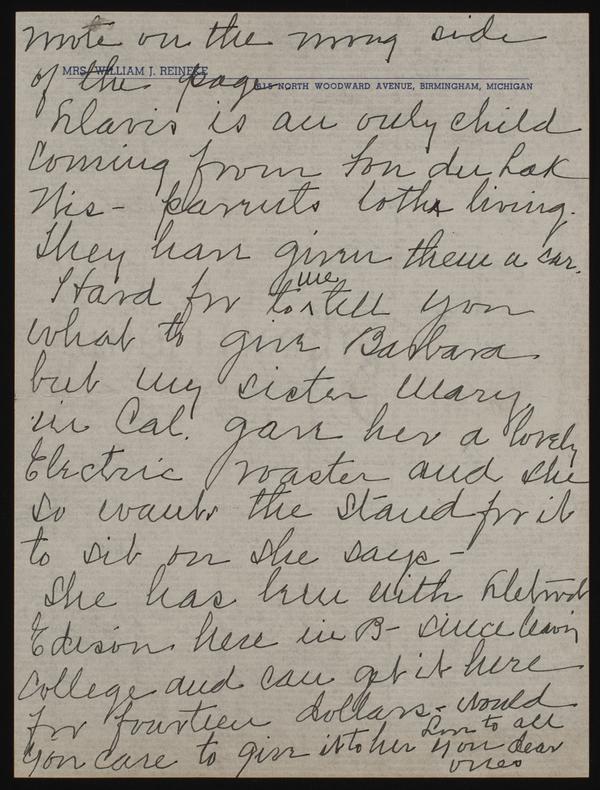 wrote on the wrong side
MRS. WILLIAM J. REINEKE
of the page
615 NORTH WOODWARD AVENUE, BIRMINGHAM, MICHIGAN
Davis is an only child
Coming from Fon du Lak
Wis - parents both living.
They have given them a car.
Hard for me to tell you
what to give Barbara
but my sister Mary
in Cal. gave her a lovely
Electric roaster and she
so wants the stand for it
to sit on she says -
She has been with Detroit
Edison here in B- since leaving
College and can get it here
for fourteen dollars - would
you care to give it to her
Love to all
you dear
ones